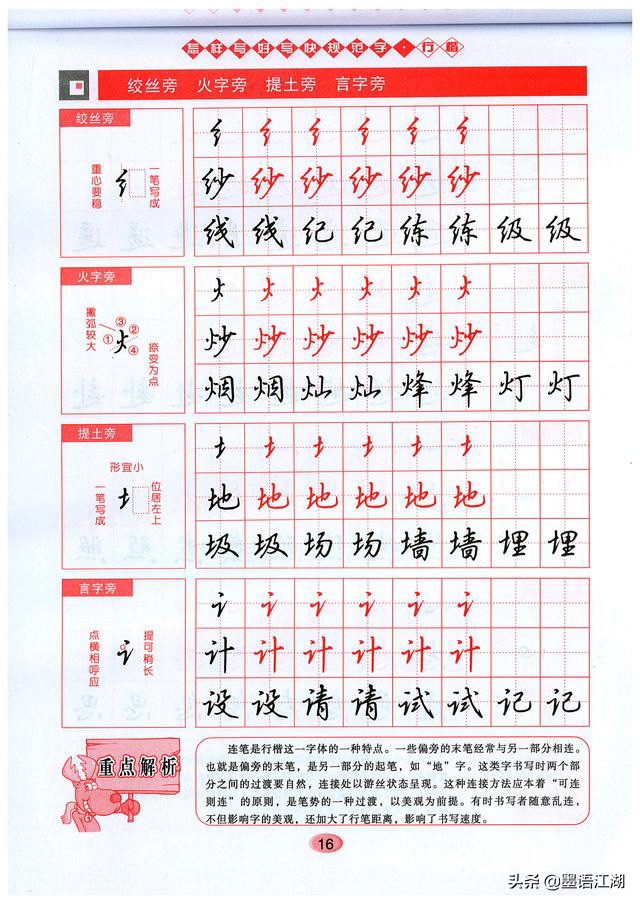 怎样写好写快规范字·行楷
绞丝旁 火字旁 提土旁 言字旁
绞丝旁
重心要稳
纟
一笔写成
纟 纟 纟 纟 纟 纟
纱 纱 纱 纱 纱 纱
线 线 纪 纪 练 练 级 级
火字旁
撇弧较大
③
①
②
④
火
捺变为点
火 火 火 火 火 火
炒 炒 炒 炒 炒 炒
烟 烟 灿 灿 烽 烽 灯 灯
提土旁
形宜小
一笔写成
土
位居左上
土 土 土 土 土 土
地 地 地 地 地 地
圾 圾 场 场 墙 墙 埋 埋
言字旁
点横相呼应
讠
提可稍长
讠 讠 讠 讠 讠 讠
计 计 计 计 计 计
设 设 请 请 试 试 记 记
重点解析
连笔是行楷这一字体的一种特点。一些偏旁的末笔经常与另一部分相连。
也就是偏旁的末笔，是另一部分的起笔，如“地”字。这类字书写时两个部
分之间的过渡要自然，连接处以游丝状态呈现。这种连接方法应本着“可连
则连”的原则，是笔势的一种过渡，以美观为前提。有时书写者随意乱连，
不但影响字的美观，还加大了行笔距离，影响了书写速度。
16
头条 @墨语江湖